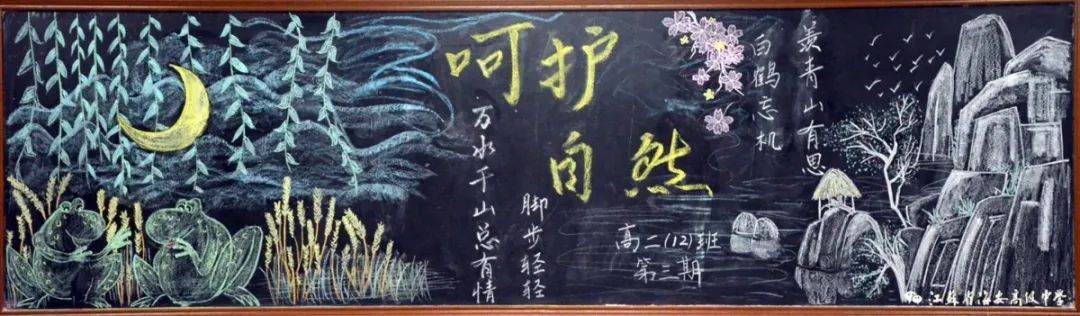 呵护
自然
万水千山总有情
脚步轻轻
羡青山有思
白鹤忘机
高二(12)班
第三期
江苏省海安高级中学